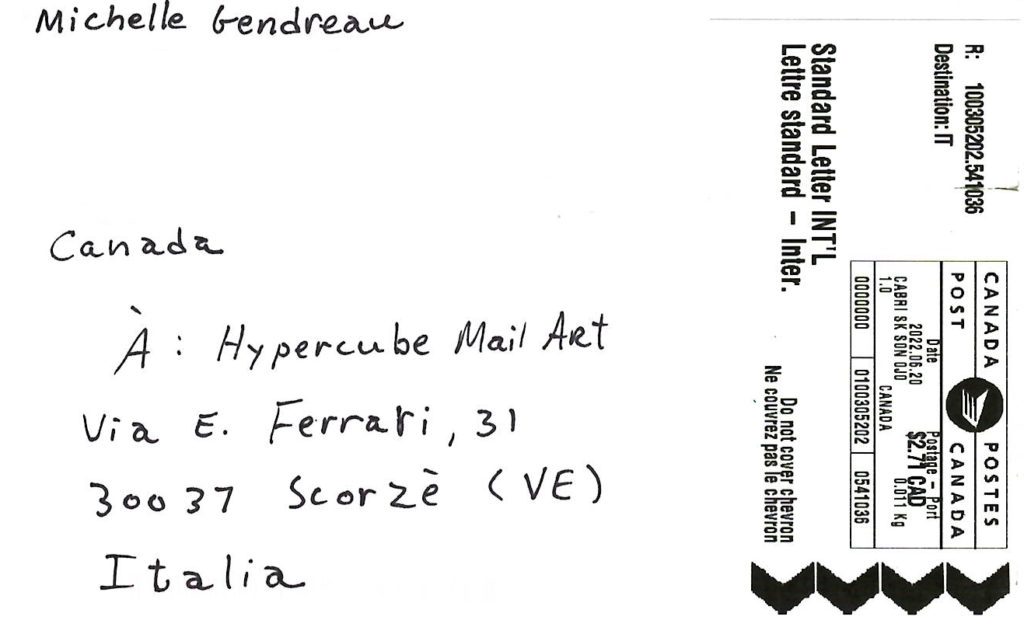 Michelle Gendreau
Canada
À : Hypercube Mail Art
Via E. Ferrari, 31
30037 Scorzè (VE)
Italia
R: 100305202.541036
Destination: IT
Standard Letter INT'L
Lettre standard – Inter.
CANADA POSTES
POST CANADA
Date
2022.06.20
Postage – Port
$2.71 CAD
0.011 Kg
CABRI SK S0N 0J0 CANADA
1.0
0000000 0100305202 0541036
Do not cover chevron
Ne couvrez pas le chevron